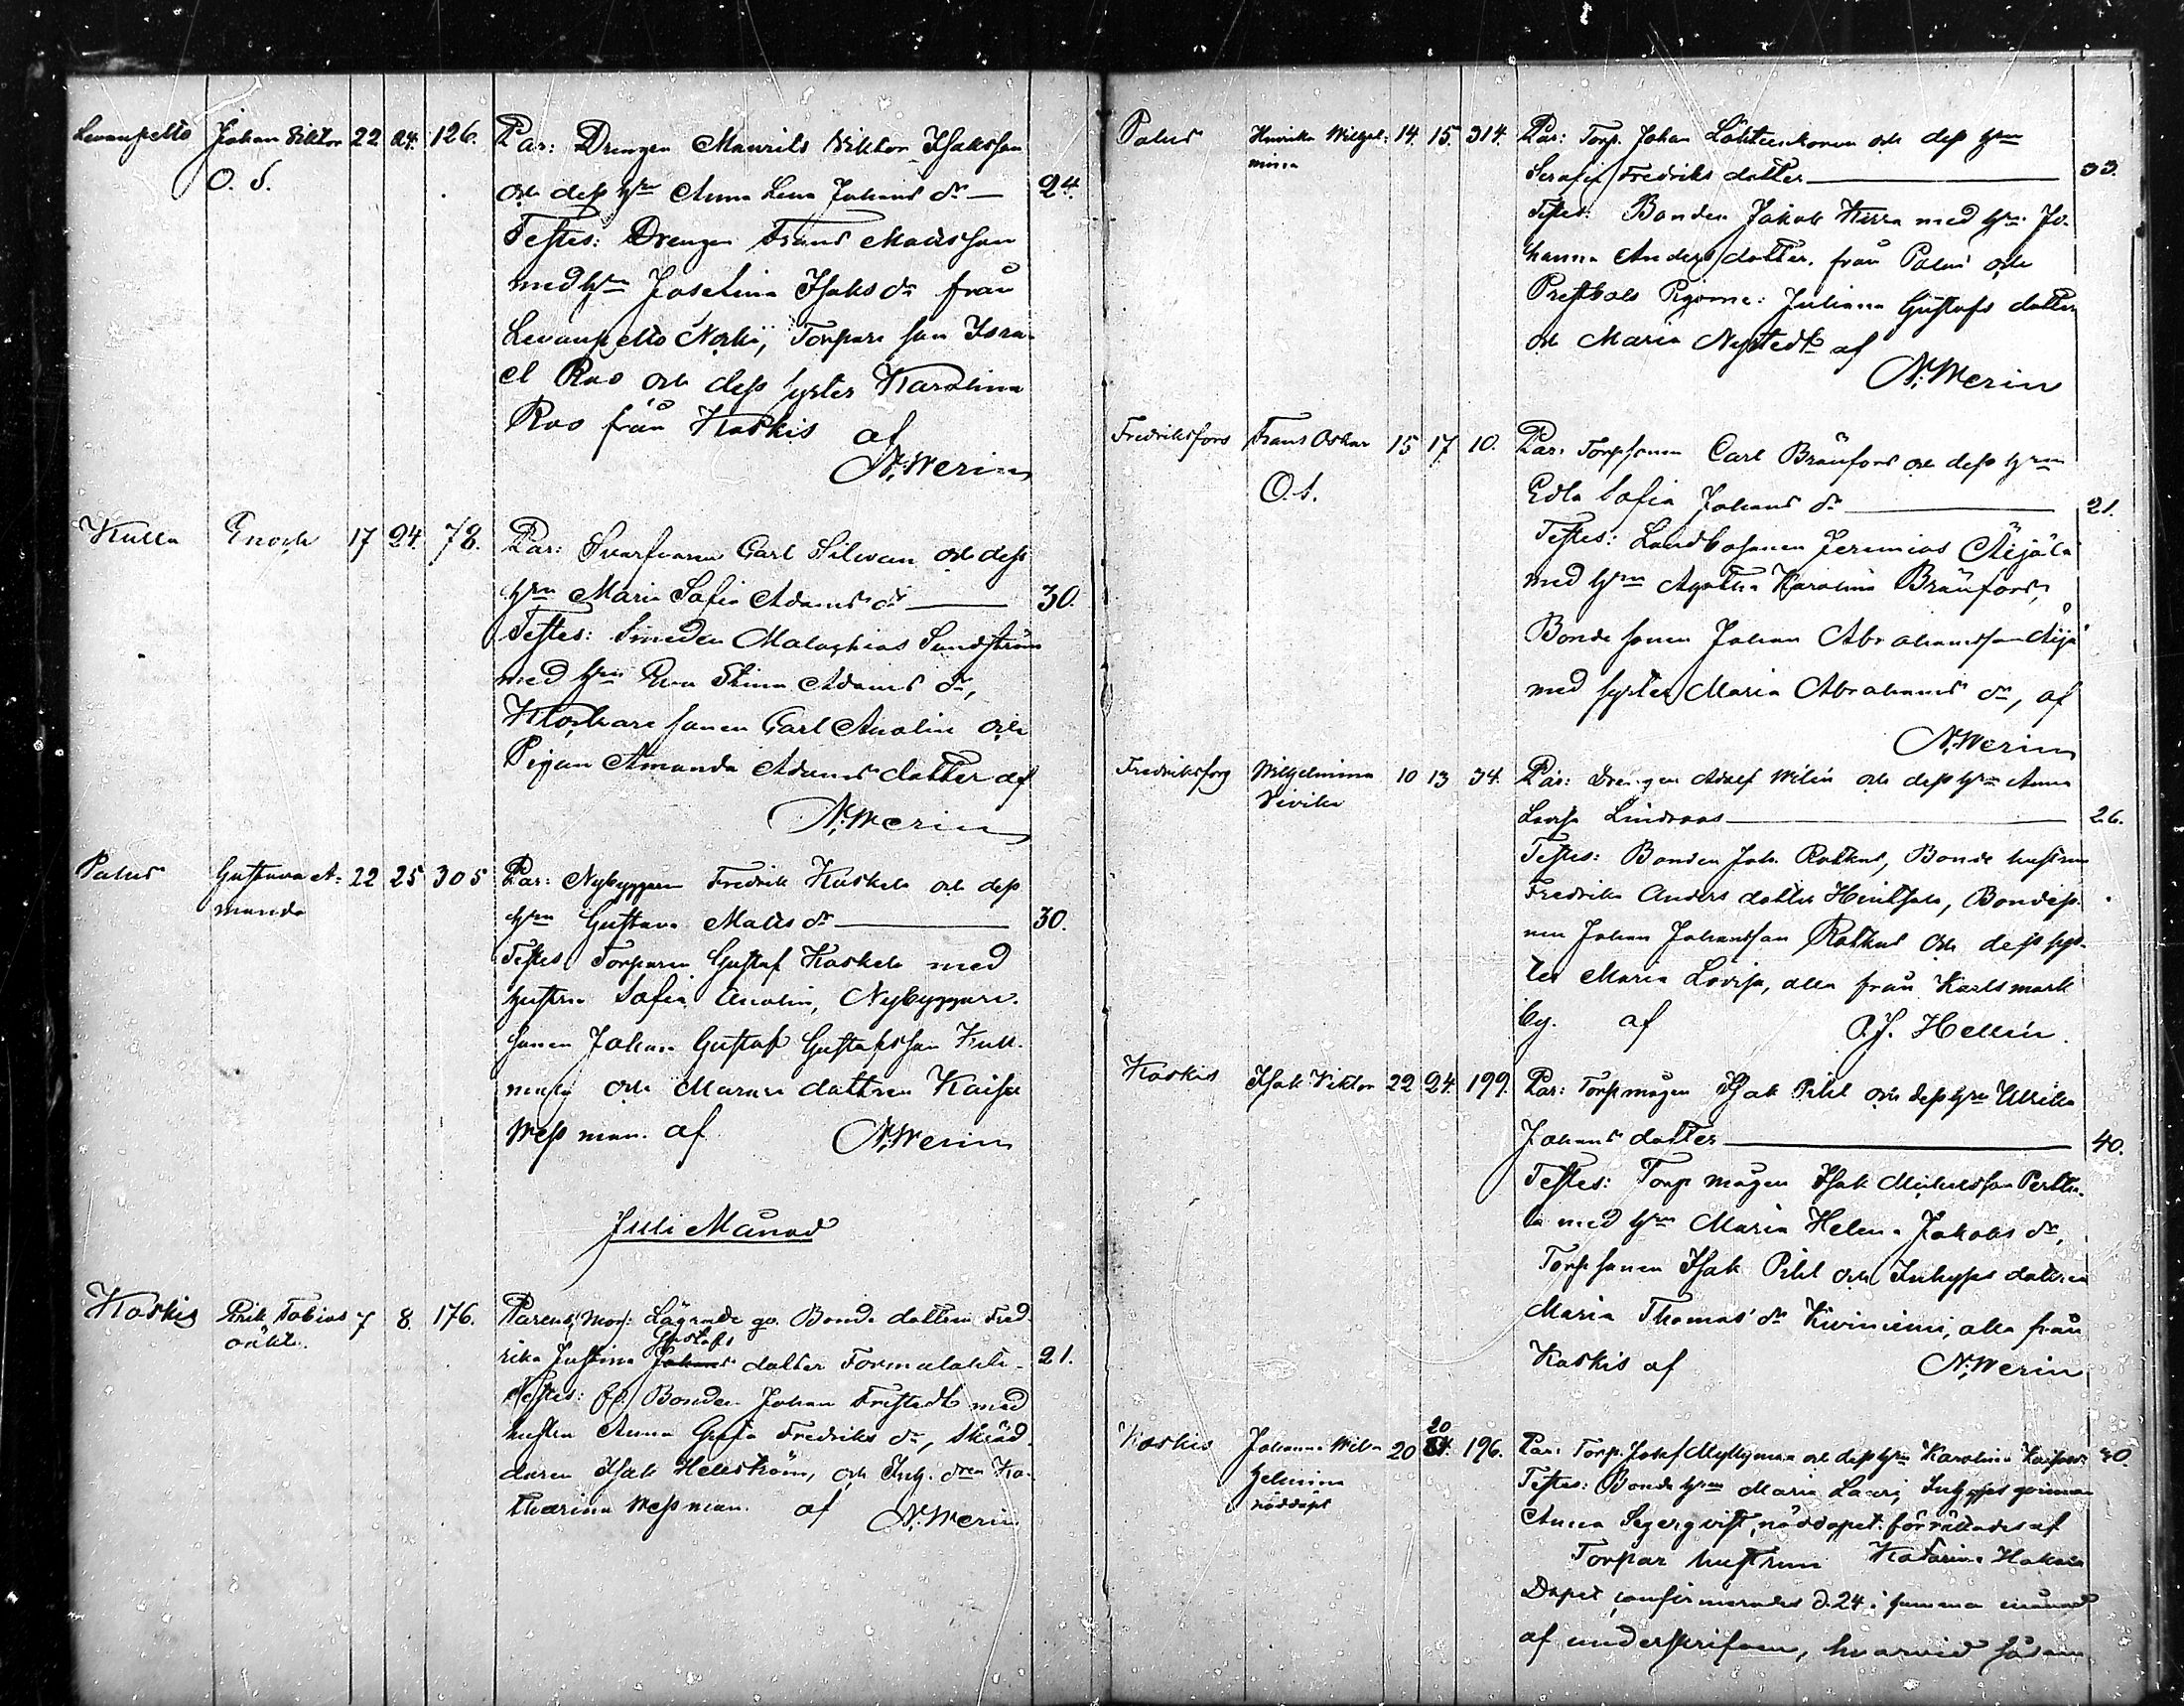 Levanpelto Johan Viktor 22 24. 126. Par: Drengen Maurits Viktor Isaksson
O. S. och dess hru Anna Lena Johans dr — 24.
Testes: Drengen Frans Matsson
med hru Josefina Isaks dr från
Levanpelto Torpare son Isra-
el Roo och dess syster Karolina
Roo från Koskis af
N. Werin
Kulla Enoch 17 24. 78. Par: Svarfvaren Carl Silvan och dess
hru Maria Sofia Adams dr — 30.
Testes: Smeden Malachias Sundström
med hru Eva Stina Adams dr,
Klockare sonen Carl Analin och
Pigan Amanda Adams dotter af
N. Werin
Palus Gustava A- 22 25 305 Par: Nybyggaren Fredrik Koskela och dess
manda
hru Gustava Mats dr — 30.
Testes Torparen Gustaf Koskela med
hustru Sofia Analin, Nybyggare-
sonen Johan Gustaf Gustafsson
och dottren Kaisa
Wessman. af N. Werin
Juli Månad
Koskis Erik Tobias 7 8. 176. Parens, Mor: Lägrade qv. Bonde dottren Fred-
oäkt.
Gustafs
rika Justina Johans dotter Tormalakti- 21.
Testes: Bonden Johan Fristedt med
hustru Anna Greta Fredriks dr, Skräd-
daren Isak Hellström, och Inh. dren Ka-
tharina Wessman. af N. Werin
Palus Henrika Wilhel- 14. 15. 314. Par: Torp. Johan Lähteenkorva och dess hru
mina
Serafia Fredriks dotter — 33.
Testes: Bonden Jakob Kirra med hru Jo-
hanna Anders dotter, från Palus och
Prestbols Pigorne: Juliana Gustafs dotter
och Maria Nystedt af
N. Werin
Fredriksfors Frans Oskar 15 17 10. Par: Torpsonen Carl Brännfors och dess hru
O. S.
Edla Sofia Johans dr — 21.
Testes: Landbosonen Jeremias Äijälä
med hru Agatha Karolina Brännfors,
Bonde sonen Johan Abrahamsson Äijä
med syster Maria Abrahams dr, af
N. Werin
Fredriksforg Wilhelmina 10 13 34. Par: Drengen Adolf Wilén och dess hru Anna
Vivika
Lovisa Lindroos — 26.
Testes: Bonden Joh. Rotkus, Bonde hustrun
Fredrika Anders dotter Heintsala, Bondeso-
nen Johan Johansson Rotkus och dess sys-
ter Maria Lovisa, alla från Karlsmark
by. af O. J. Hellén.
Koskis Isak Viktor 22 24. 199. Par: Torpmågen Isak Pihl och dess hru Ulrika
Johans dotter — 40.
Testes: Torp mågen Isak Michelsson Perttu-
la med hru Maria Helena Jakobs dr,
Torp sonen Isak Pihl och Inhyses dottren
Maria Thomas dr Kiviniemi, alla från
Koskis af N. Werin
20
Koskis Johanna Wil- 20 196. Par: Torp. Josef Myllymaa och dess hru Karolina 40.
helmina
nöddöpt
Testes: Bonde hru Maria Lauri, Inhyses qvinnan
Anna Segerqvist, nöddopet förrättades af
Torpar hustrun Katarina Hakala
Dopet confirmerades d. 24 i samma månad
af underskrifven, hvarvid såsom